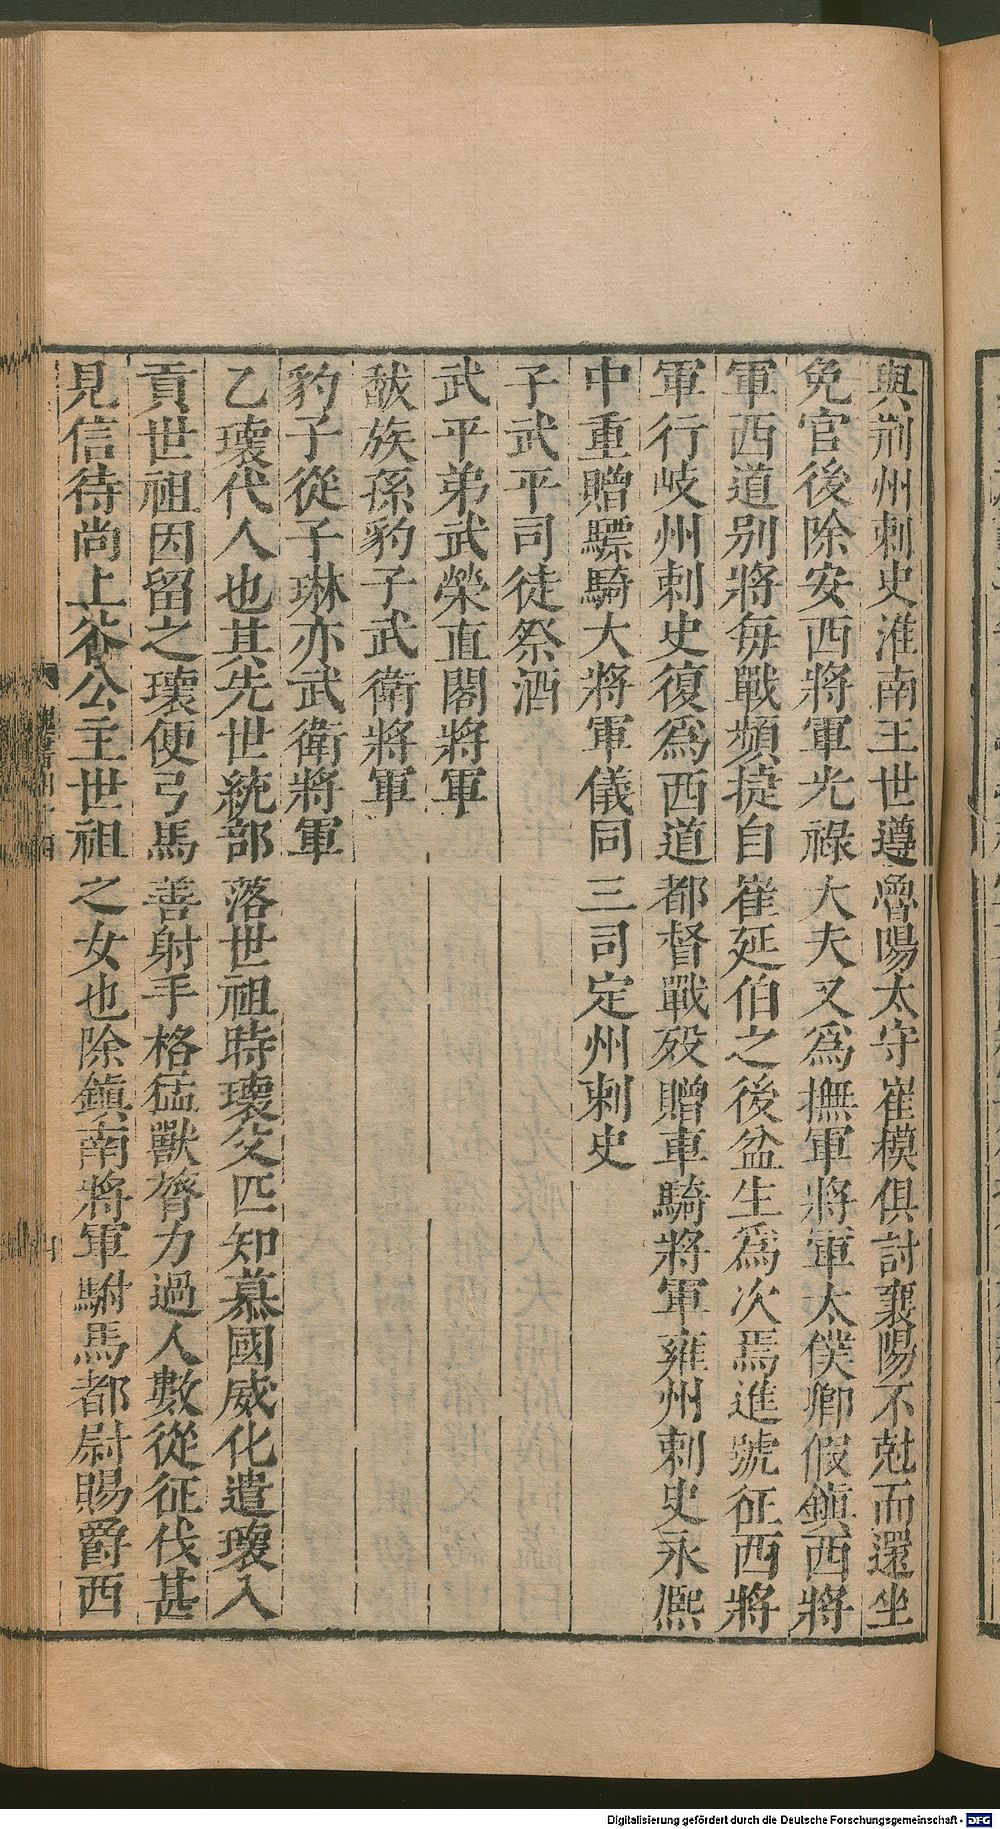 與荆州刺史淮南王世遵魯陽太守崔模俱討襄陽不尅而還坐
免官後除安西將軍光祿大夫又爲撫軍將軍太僕卿假鎮西將
軍西道别將每戰頻捷自崔延伯之後盆生爲次焉進號征西將
軍行岐州刺史復爲西道都督戰歿贈車騎將軍雍州刺史永熙
中重贈驃騎大將軍儀同三司定州刺史
子武平司徒祭酒
武平弟武榮直閣將軍
猷族孫豹子武衛將軍
豹子從子琳亦武衛將軍
乙瓌代人也其先世統部落世祖時瓌父匹知慕國威化遣瓌入
貢世祖因留之瓌便弓馬善射手格猛獸膂力過人數從征伐甚
見信待尚上谷公主世祖之女也除鎮南將軍駙馬都尉賜爵西
魏書四十四
四
Digitalisierung gefördert durch die Deutsche Forschungsgemeinschaft - DFG